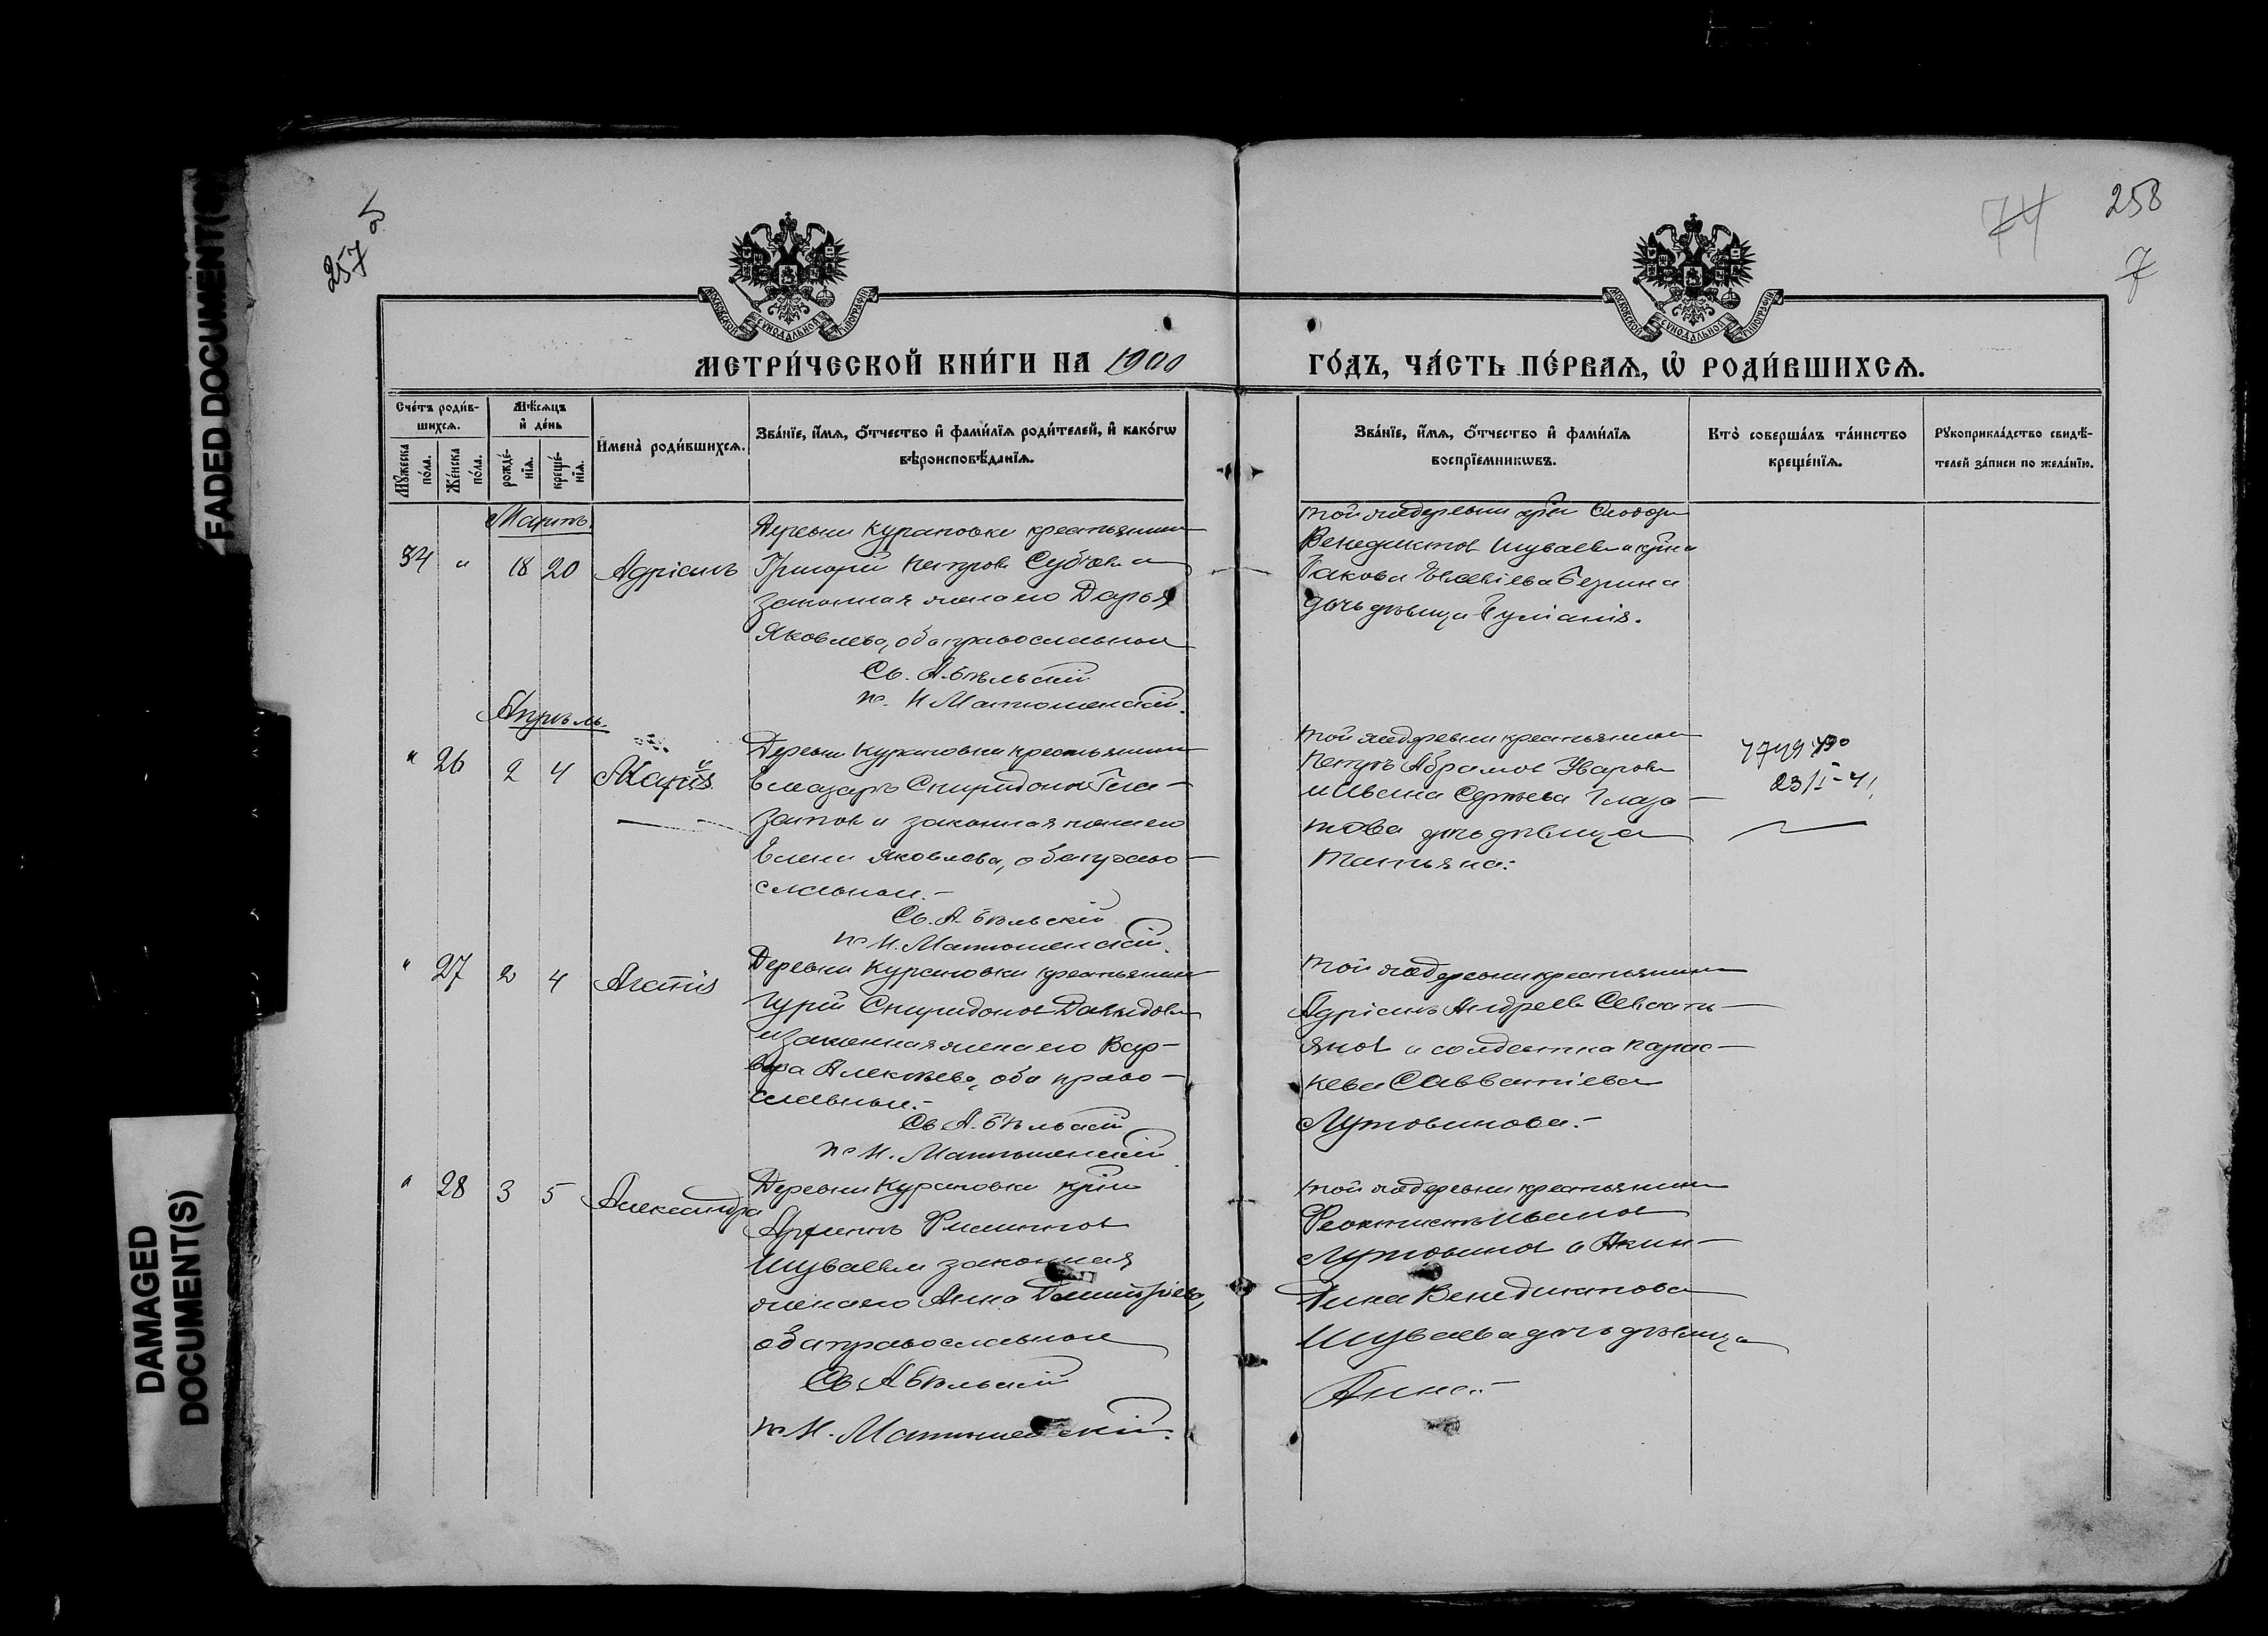 FADED DOCUMENT(S)
DAMAGED
DOCUMENT(S)
257 об
74
258
7
МОСКОВСКОЙ СѴНОДАЛЬНОЙ ТИПОГРАФІИ
МОСКОВСКОЙ СѴНОДАЛЬНОЙ ТИПОГРАФІИ
МЕТРИ́ЧЕСКОЙ КНИ́ГИ НА 1900
ГО́ДЪ, ЧА́СТЬ ПЕ́РВАѦ, Ѡ҆ РОДИ́ВШИХСѦ.
Сче́тъ роди́в-
шихсѧ.
Мꙋ́жеска
по́ла.
Же́нска
по́ла.
Мѣ́сѧцъ
и҆ де́нь
рожде́-
нїѧ.
креще́-
нїѧ.
И҆мена̀ роди́вшихсѧ.
Зва́нїе, и҆́мѧ, ѻ҆́тчество и҆ фами́лїѧ роди́телей, и҆ како́гѡ
вѣроисповѣ́данїѧ.
Зва́нїе, и҆́мѧ, ѻ҆́тчество и҆ фами́лїѧ
воспрїе́мникѡвъ.
Кто̀ соверша́лъ та́инство
креще́нїѧ.
Рꙋкоприкла́дство свидѣ́-
телей за́писи по жела́нїю.
Мартъ.
34 " 18 20 Адріанъ
Деревни Курановки крестьянинъ
Григорій Петровъ и
законная жена его Дарья
Яковлева, оба православные
Св. А. Бѣльскій
п. И Матюшенскій.
той же деревни
Венедиктовъ Шуваевъ и
Іакова
дочь дѣвица
Апрѣль.
" 26 2 4 Марія
Деревни Курановки крестьянинъ
Елеазаръ Спиридоновъ
и законная жена его
Елена Яковлева, оба право-
славные.-
Св. А. Бѣльскій
п. И. Матюшенскій.
той же деревни крестьянинъ
Петръ Абрамовъ Уваровъ
и Ивана Сергѣева Глаза-
това дочь дѣвица
Татьяна.
23/I-41
" 27 2 4 Агапія
Деревни Курановки крестьянинъ
Гурій Спиридоновъ Давыдовъ
и законная жена его Вар-
вара Алексѣева, оба право-
славные.-
Св А. Бѣльскій
п. И. Матюшенскій.
той же деревни крестьянинъ
Адріанъ Андреевъ Севасть-
яновъ и солдатка Парас-
кева Савватіева
Лутовинова.-
" 28 3 5 Александра
Деревни Курановки
Филипповъ
Шуваевъ законная
жена его Анна Димитріева,
оба православные
Св А Бѣльскій
п. И. Матюшенскій.
той же деревни крестьянинъ
Феоктистъ Ивановъ
Лутовиновъ и Акин-
Венедиктова
Шуваева дочь дѣвица
Анна.-